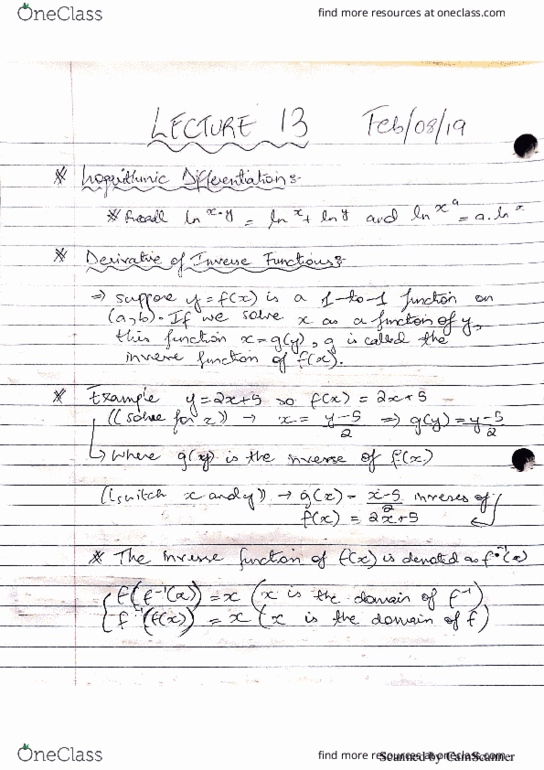 OneClass
find more resources at oneclass.com
LECTURE 13 Feb/08/19
* Logarithmic Differentiation:-
* Recall ln x·y = ln x + ln y and ln x^a = a. ln x
* Derivative of Inverse Functions:-
⇒ suppose y=f(x) is a 1-to-1 function on
(a,b). If we solve x as a function of y,
this function x=g(y), g is called the
inverse function of f(x).
* Example y=2x+5 so f(x) = 2x+5
((solve for x)) → x = y-5/2 ⇒ g(y) = y-5/2
↳ where g(y) is the inverse of f(x)
((switch x and y)) → g(x) = x-5/2 inverses of
f(x) = 2x+5
* The inverse function of f(x) is denoted as f^-1(x)
f(f^-1(x)) = x (x is the domain of f^-1)
f^-1(f(x)) = x (x is the domain of f)
OneClass
find more resources at oneclass.com
Scanned by CamScanner